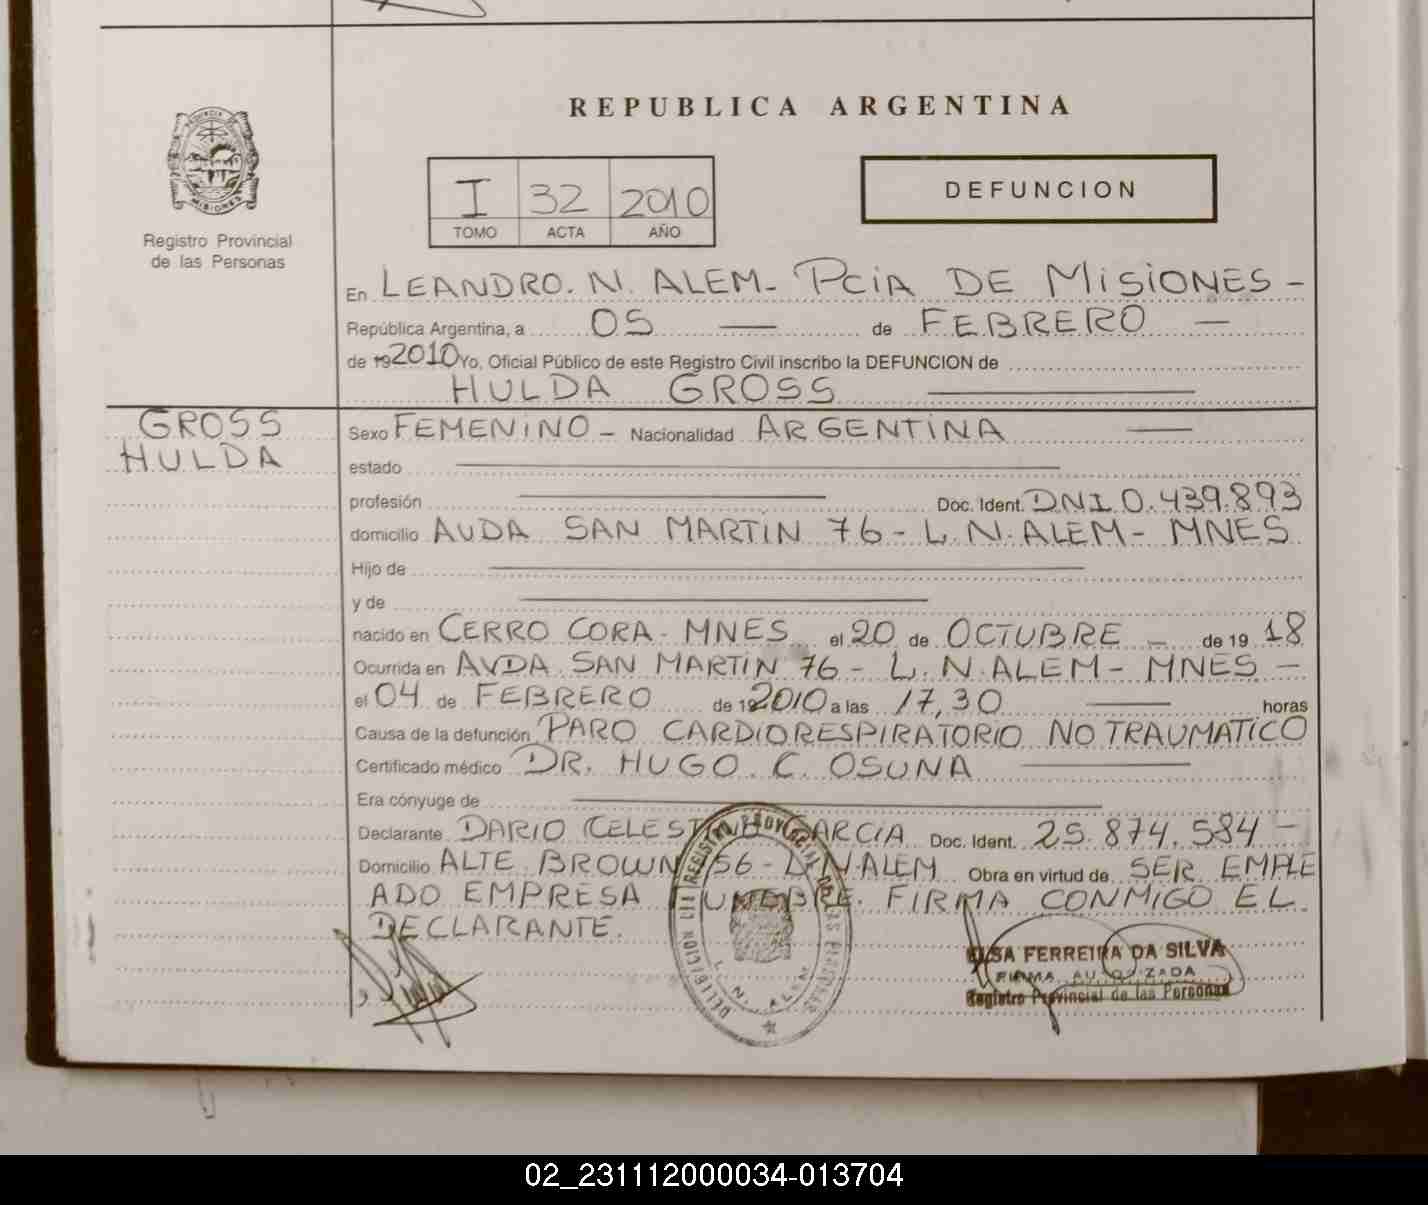 REPUBLICA ARGENTINA
PROVINCIA DE
MISIONES
Registro Provincial
de las Personas
I 32 2010
TOMO ACTA AÑO
DEFUNCION
En LEANDRO. N. ALEM - PCiA DE MiSiONES -
República Argentina, a 05 — de FEBRERO —
de 192010 Yo, Oficial Público de este Registro Civil inscribo la DEFUNCION de
HULDA GROSS
GROSS
HULDA
Sexo FEMENiNO - Nacionalidad ARGENTiNA —
estado —
profesión — Doc. Ident. DNI 0.439.893
domicilio AVDA SAN MARTiN 76 - L.N.ALEM - MNES
Hijo de —
y de —
nacido en CERRO CORA - MNES el 20 de OCTUBRE - de 19 18
Ocurrida en AVDA SAN MARTiN 76 - L.N.ALEM - MNES -
el 04 de FEBRERO de 192010 a las 17,30 — horas
Causa de la defunción PARO CARDIORESPIRATORIO NO TRAUMATICO
Certificado médico DR. HUGO. C. OSUNA —
Era cónyuge de —
Declarante DARIO CELESTINO GARCIA Doc. Ident. 25.874.584 -
Domicilio ALTE BROWN 56 - L.N.ALEM Obra en virtud de SER EMPLE
ADO EMPRESA FUNEBRE. FIRMA CONMIGO EL
DECLARANTE.
REGISTRO PROVINCIAL DE LAS PERSONAS
L. N. ALEM
ELSA FERREIRA DA SILVA
FIRMA AUTORIZADA
Registro Provincial de las Personas
02_231112000034-013704